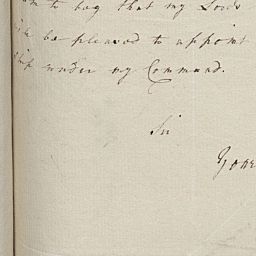 to beg that my Lords
be pleased to appoint
under my Command.
Sir
Your